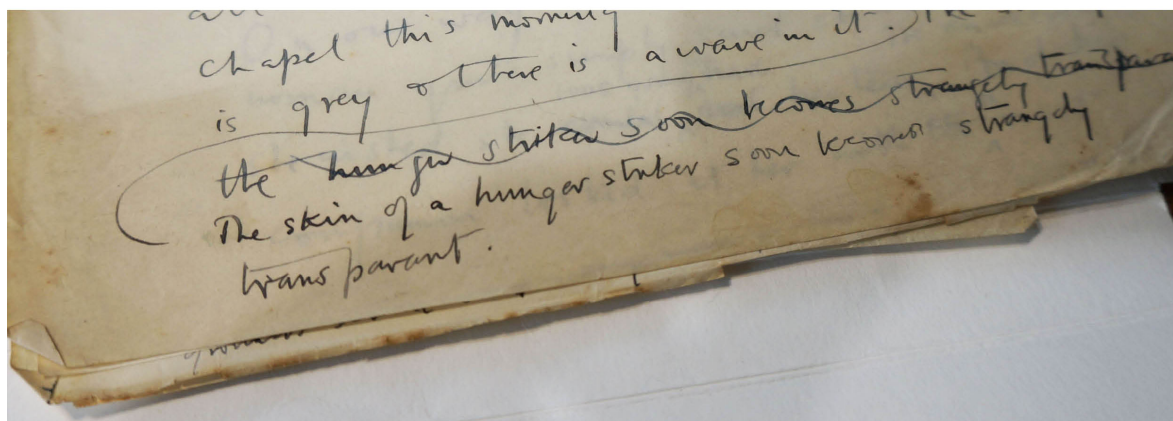 all
chapel this morning
is grey & there is a wave in it. The
the hunger striker soon becomes strangely
The skin of a hunger striker soon becomes strangely
transparant.